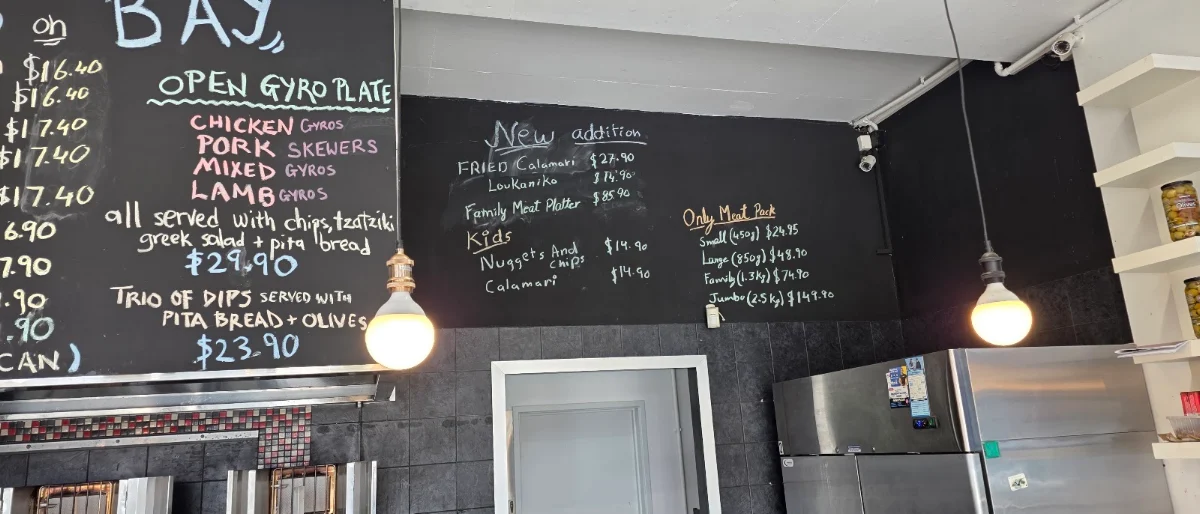 oh
BAY
$16.40
$16.40
$17.40
$17.40
$17.40
6.90
7.90
.90
.90
CAN)
OPEN GYRO PLATE
CHICKEN GYROS
PORK SKEWERS
MIXED GYROS
LAMB GYROS
all served with chips, tzatziki
greek salad + pita bread
$29.90
TRIO OF DIPS SERVED WITH
PITA BREAD + OLIVES
$23.90
New addition
FRIED Calamari $27.90
Loukaniko $14.90
Family Meat Platter $85.90
Kids
Nuggets And Chips $14.90
Calamari $14.90
Only Meat Pack
Small (450g) $24.95
Large (850g) $48.90
Family (1.3kg) $74.90
Jumbo (2.5kg) $149.90